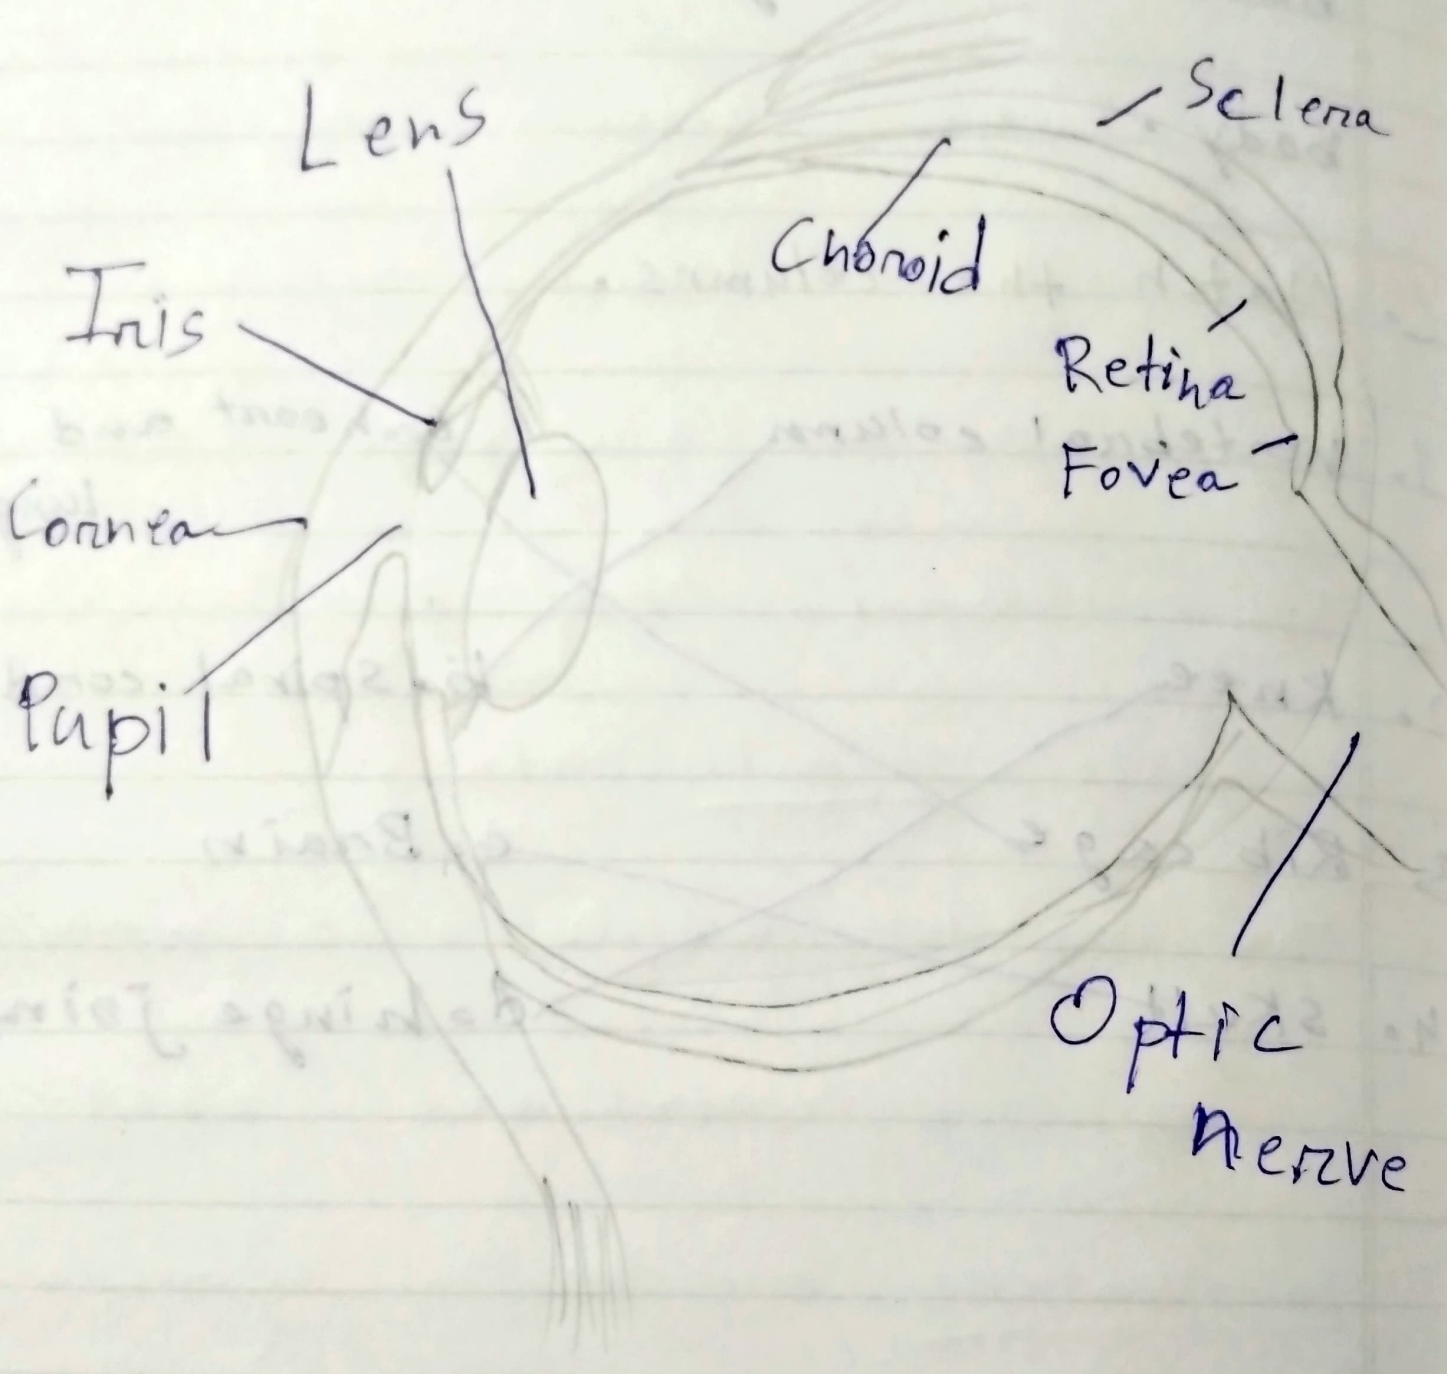 Lens
Sclera
Choroid
Iris
Retina
Fovea
Cornea
Pupil
Optic
nerve